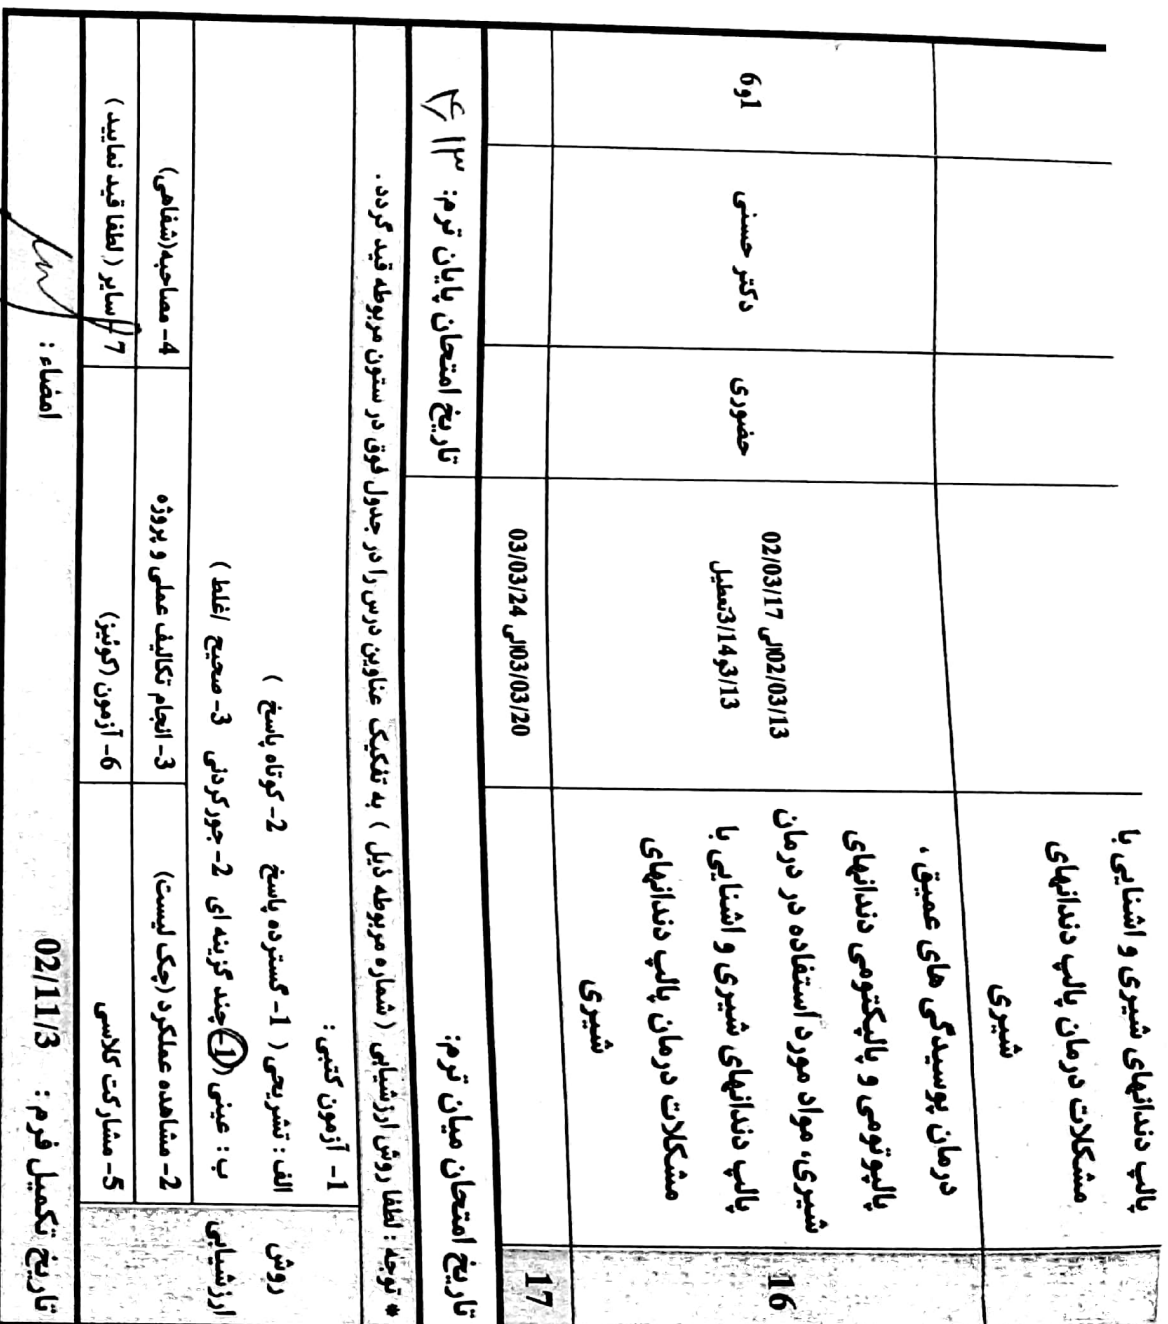 پالپ دندانهای شیری و اشنایی با
مشکلات درمان پالپ دندانهای
شیری
16
درمان پوسیدگی های عمیق ،
پالپوتومی و پالپکتومی دندانهای
شیری، مواد مورد استفاده در درمان
پالپ دندانهای شیری و اشنایی با
مشکلات درمان پالپ دندانهای
شیری
02/03/13الی 02/03/17
3/13و3/14تعطیل
حضوری
دکتر حسنی
1و6
17
03/03/20الی 03/03/24
تاریخ امتحان میان ترم:
تاریخ امتحان پایان ترم:
* توجه : لطفا روش ارزشیابی ( شماره مربوطه ذیل ) به تفکیک عناوین درس را در جدول فوق در ستون مربوطه قید گردد.
روش
ارزشیابی
1- آزمون کتبی :
الف : تشریحی ( 1- گسترده پاسخ 2- کوتاه پاسخ )
ب : عینی (1- چند گزینه ای 2- جورکردنی 3- صحیح /غلط )
2- مشاهده عملکرد (چک لیست)
3- انجام تکالیف عملی و پروژه
4- مصاحبه(شفاهی)
5- مشارکت کلاسی
6- آزمون (کوئیز)
7- سایر ( لطفا قید نمایید )
تاریخ تکمیل فرم : 02/11/3
امضاء :